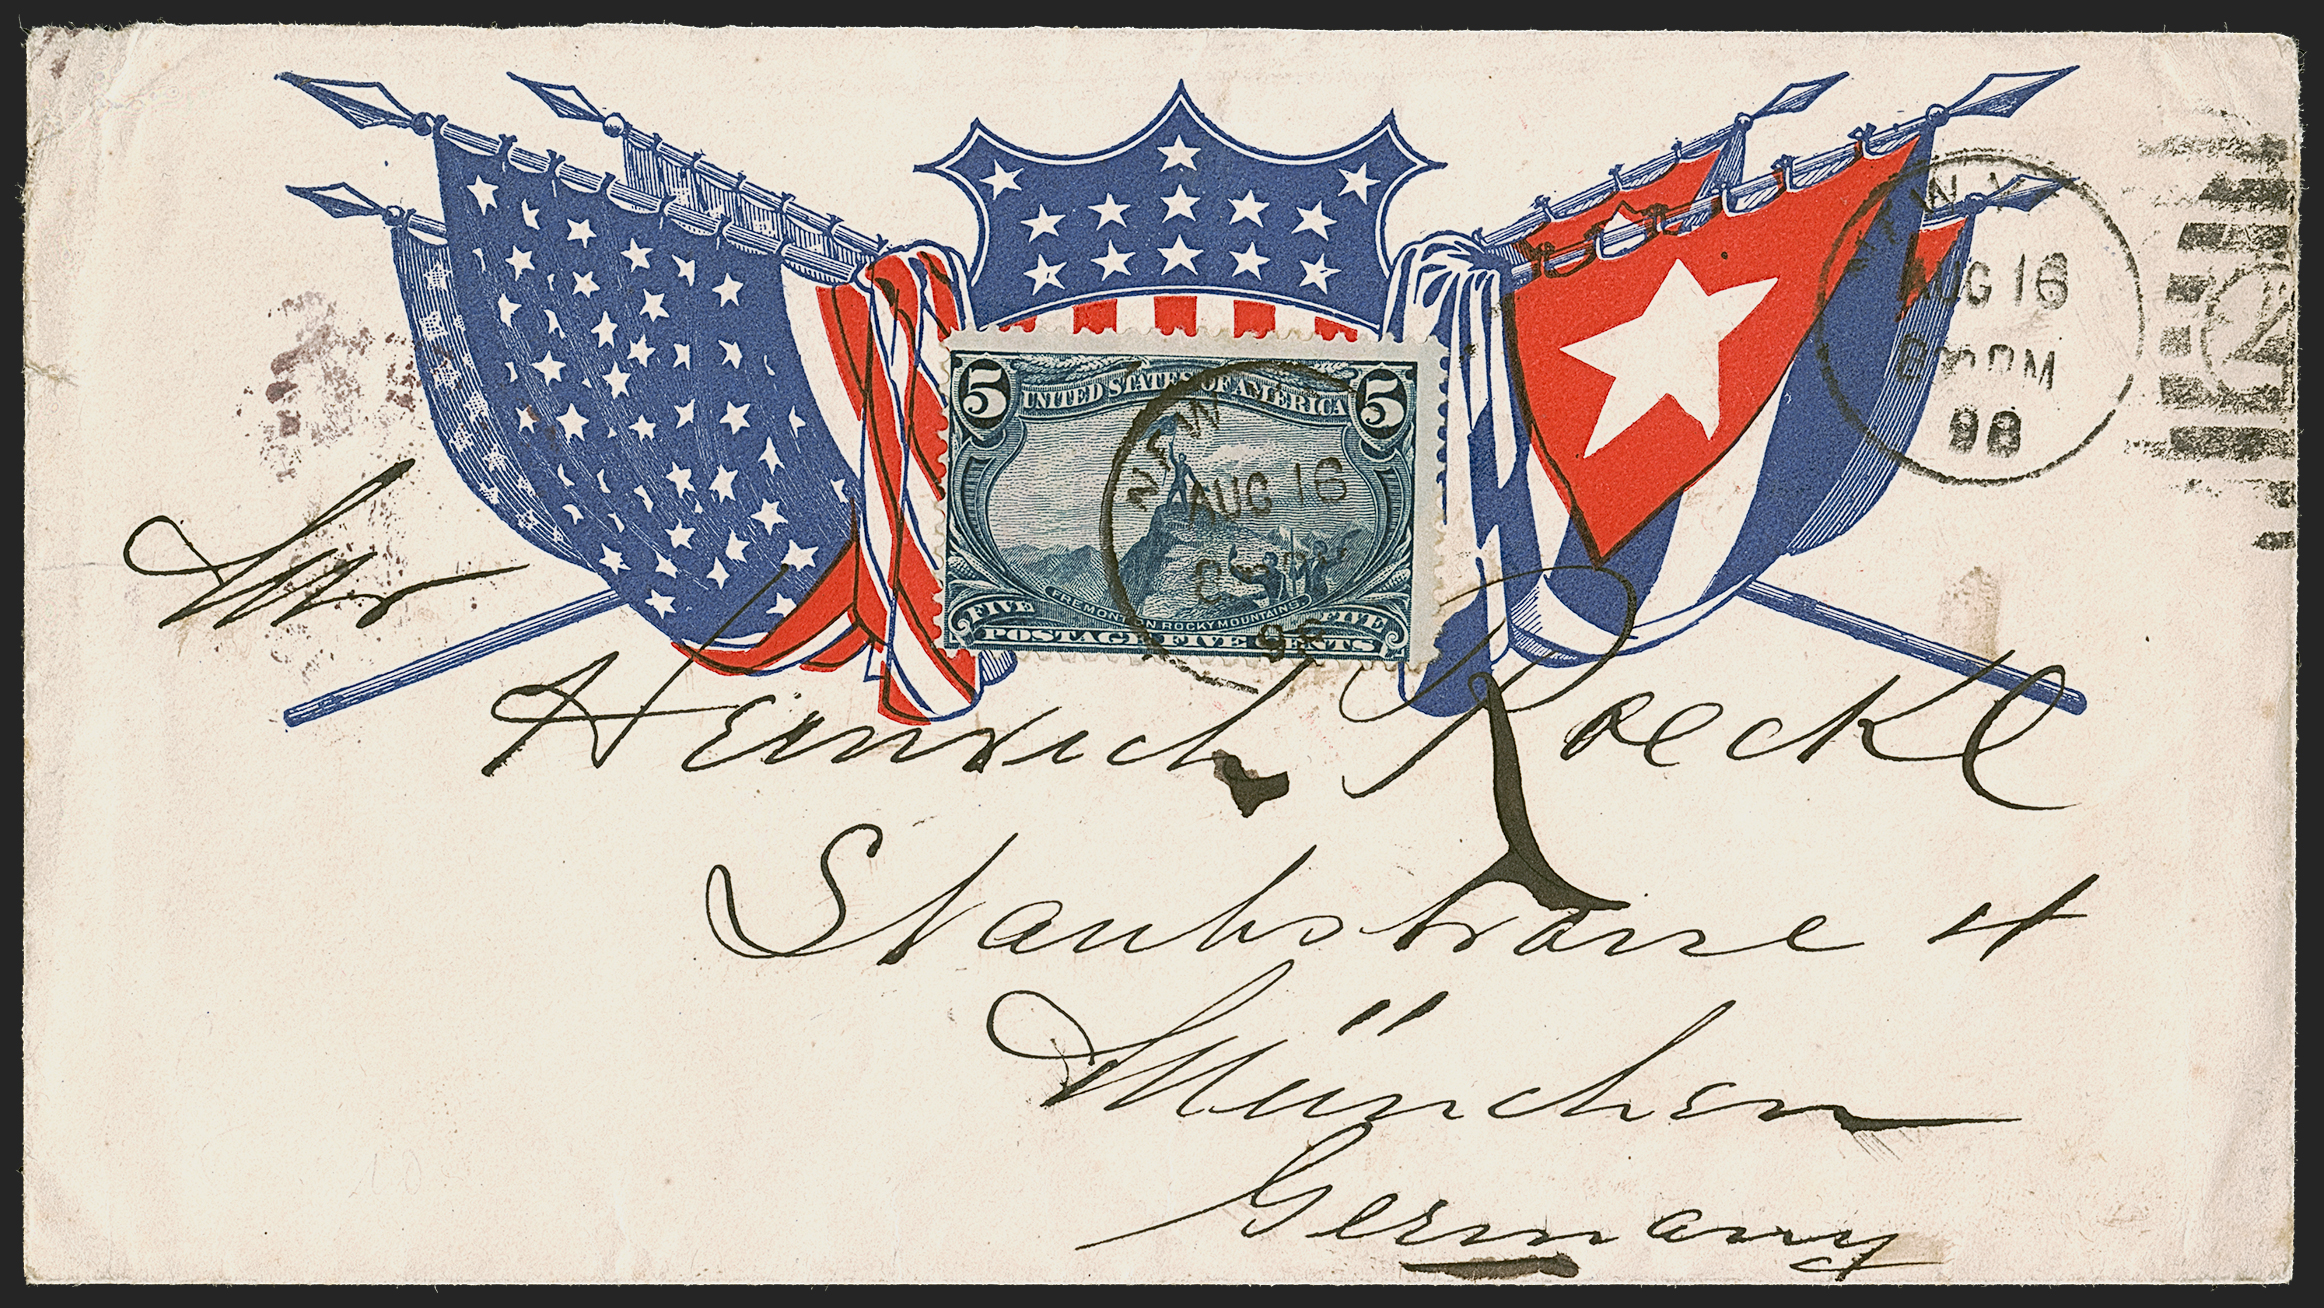 5 UNITED STATES OF AMERICA 5
FREMONT ON ROCKY MOUNTAINS
FIVE FIVE
POSTAGE FIVE CENTS
NEW
AUG 16
N.Y.
AUG 16
PM
98
2
Mr
Heinrich Roeckl
Staubstrasse 4
München
Germany